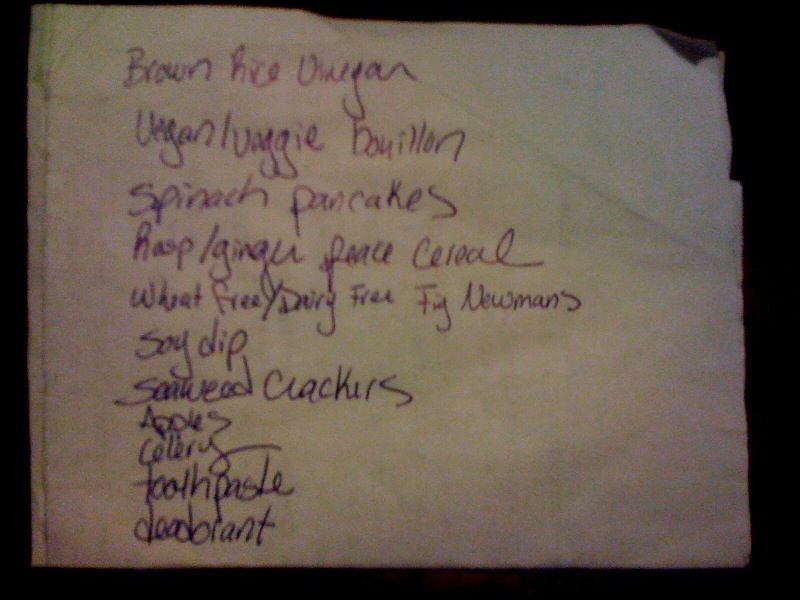 Brown Rice Vinegar
Vegan/Veggie bouillon
Spinach pancakes
Rasp/ginger peace Cereal
Wheat Free/Dairy Free Fig Newmans
Soy dip
Seaweed Crackers
Apples
Celery
toothpaste
deodorant